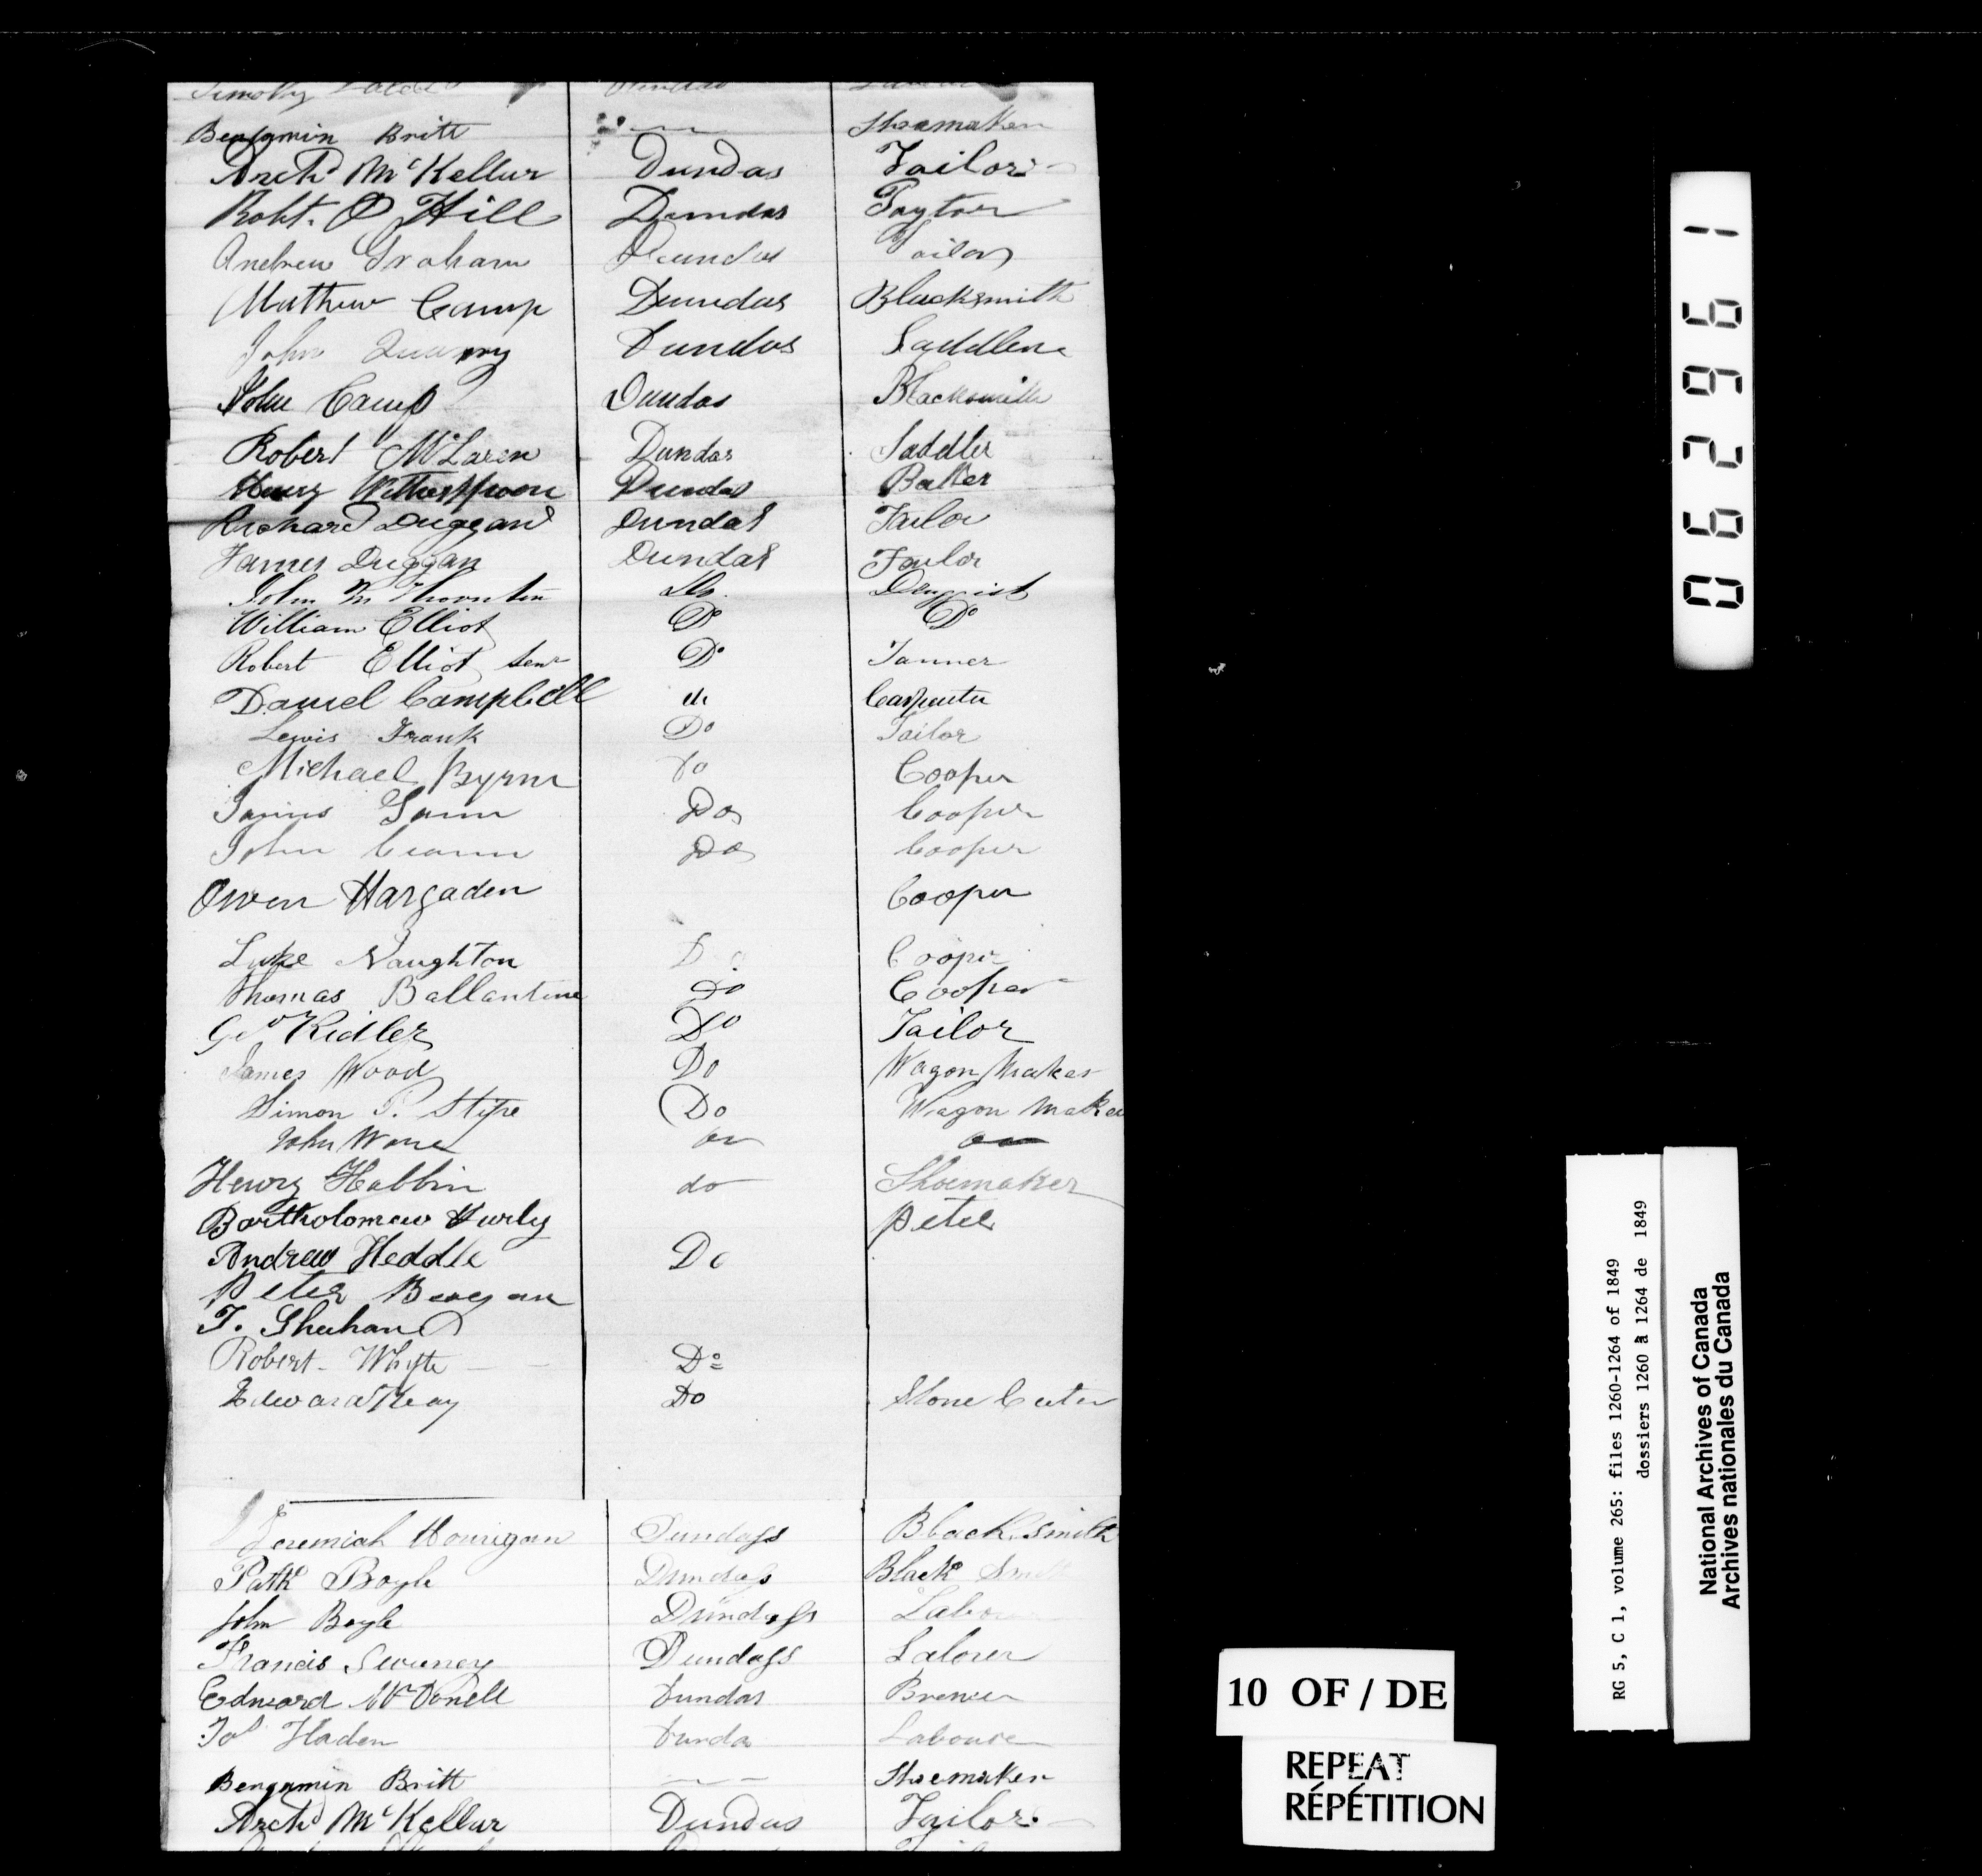 Benjamin Britt — Shoemaker
Archd McKellur Dundas Tailor
Robt. O Hill Dundas
Andrew Graham Dundas Tailor
Mathew Camp Dundas Blacksmith
John Dundas Saddler
John Camp Dundas Blacksmith
Robert McLaren Dundas Saddler
Henry Witherspoon Dundas Baker
Richard Duggan Dundas Tailor
James Duggan Dundas Tailor
John M Thornton Do. Druggist
William Elliot Do Do
Robert Elliot Senr Do Tanner
Daniel Campbell do Carpenter
Lewis Frank Do Tailor
Michael Byrne Do Cooper
James Do Cooper
John Do Cooper
Owen Hargaden Cooper
Luke Naughton Do Cooper
Thomas Ballantine Do Cooper
Geo Ridler Do Tailor
James Wood Do Wagon Maker
Simon P. Stipe Do Wagon Maker
John Ware do do
Henry Habbin do Shoemaker
Bartholomew Hurly Peter
Andrew Heddle Do
Peter Bergan
T. Shehan
Robert Whyte Do
Edward Keay Do Stone Cuter
Jeremiah Hourigan Dundass Black Smith
Patk Boyle Dundass Black Smith
John Boyle Dundass Labour
Francis Sweeney Dundass Labourer
Edward McDonell Dundas Brewer
Jos Haden Dunda Laboure
Bengamin Britt — Shoemaker
Archd McKellur Dundas Tailor
062961
RG 5, C 1, volume 265: files 1260-1264 of 1849
dossiers 1260 à 1264 de 1849
National Archives of Canada
Archives nationales du Canada
10 OF / DE
REPEAT
RÉPÉTITION